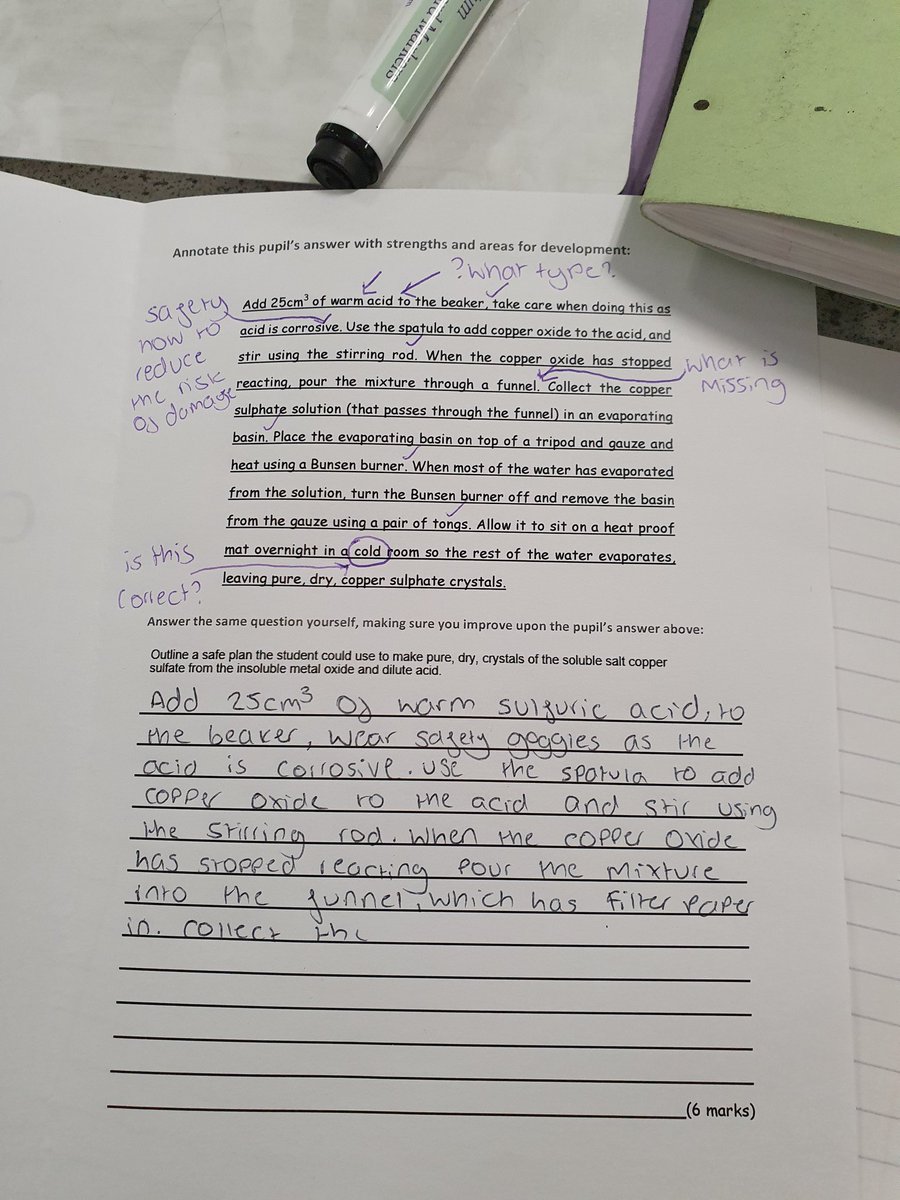 Markers
Annotate this pupil's answer with strengths and areas for development:
?what type?
sagety
how to
reduce
the risk
of damage
Add 25cm³ of warm acid to the beaker, take care when doing this as
acid is corrosive. Use the spatula to add copper oxide to the acid, and
stir using the stirring rod. When the copper oxide has stopped
reacting, pour the mixture through a funnel. Collect the copper
sulphate solution (that passes through the funnel) in an evaporating
basin. Place the evaporating basin on top of a tripod and gauze and
heat using a Bunsen burner. When most of the water has evaporated
from the solution, turn the Bunsen burner off and remove the basin
from the gauze using a pair of tongs. Allow it to sit on a heat proof
mat overnight in a cold room so the rest of the water evaporates,
leaving pure, dry, copper sulphate crystals.
what is
Missing
is this
correct?
Answer the same question yourself, making sure you improve upon the pupil's answer above:
Outline a safe plan the student could use to make pure, dry, crystals of the soluble salt copper
sulfate from the insoluble metal oxide and dilute acid.
Add 25cm³ of warm sulfuric acid, to
the beaker, wear safety goggies as the
acid is corrosive. use the spatula to add
copper oxide to the acid and stir using
the stirring rod. when the copper oxide
has stopped reacting pour the mixture
into the funnel, which has filter paper
in. collect the
(6 marks)